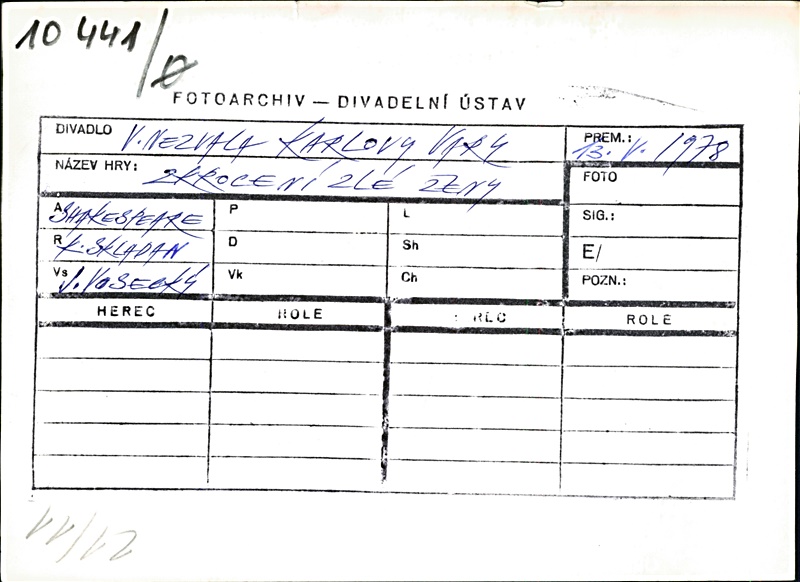 10 441/
FOTOARCHIV — DIVADELNÍ ÚSTAV
DIVADLO V. NEZVALA KARLOVY VARY
PREM.: 13. V. 1978
NÁZEV HRY: ZKROCENÍ ZLÉ ŽENY
FOTO
A SHAKESPEARE P L
SIG.:
R K. SKLADAN D Sh
E/
Vs J. VOSECKÝ Vk Ch
POZN.:
HEREC ROLE HEREC ROLE
11/12